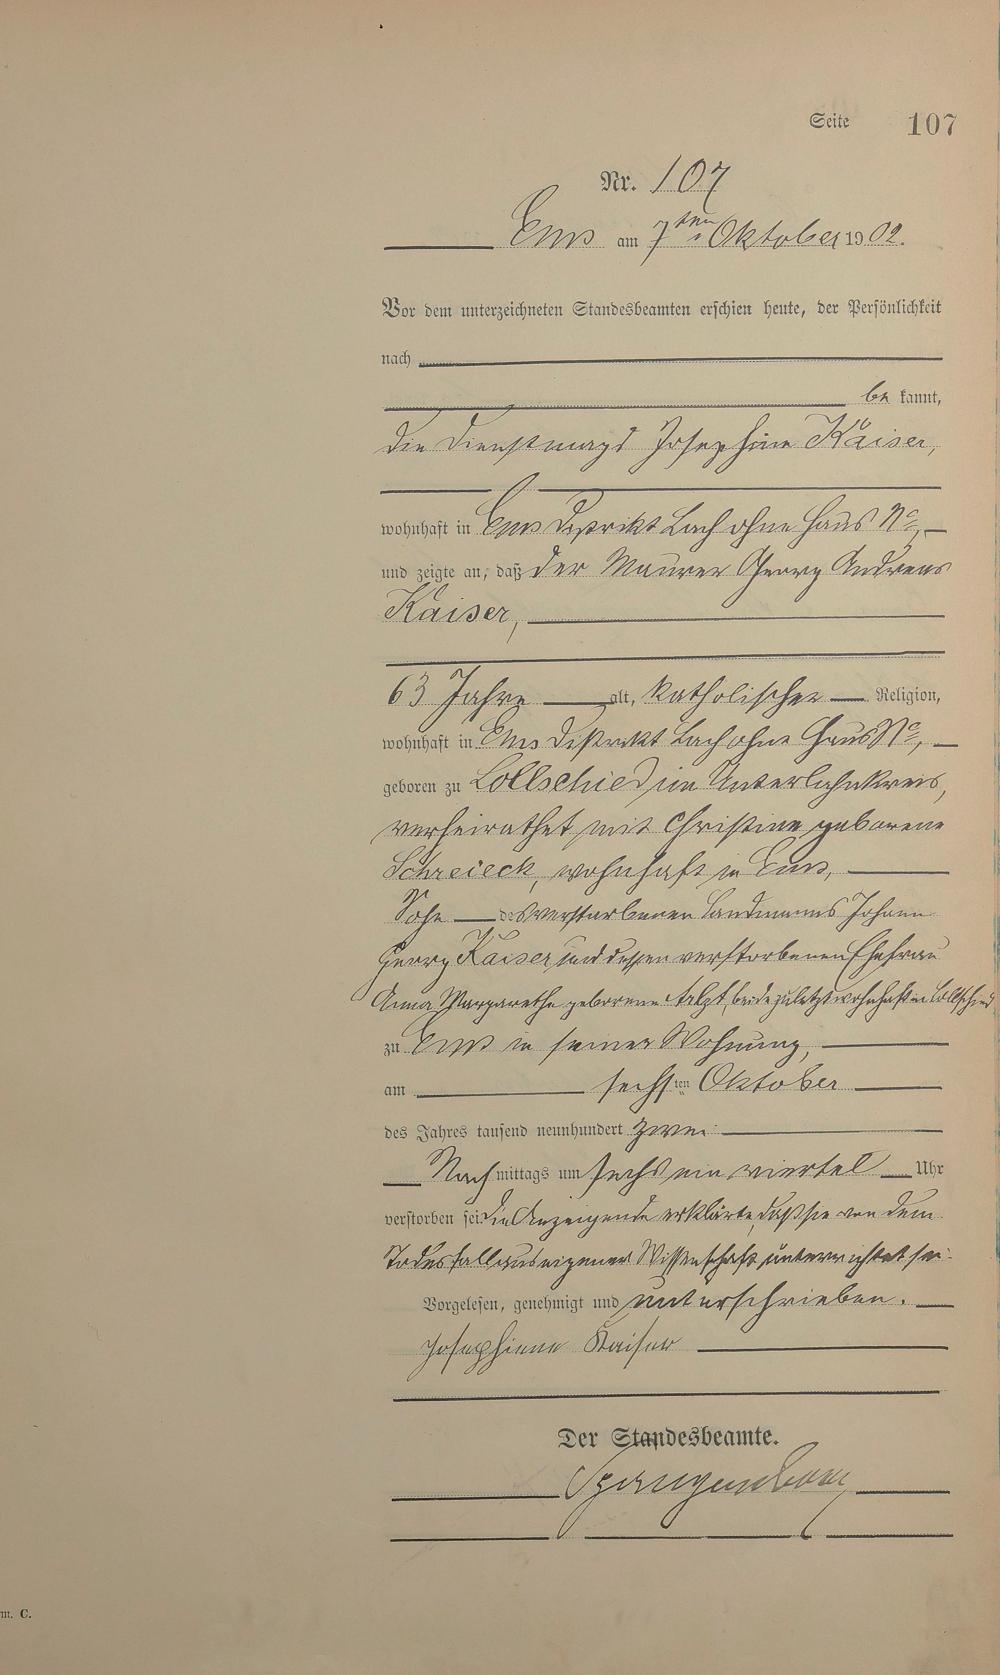 Seite 107
Nr. 107
Ems am 7ten Oktober 1902.
Vor dem unterzeichneten Standesbeamten erschien heute, der Persönlichkeit
nach
bekannt,
die Dienstmagd Josephine Kaiser,
wohnhaft in Ems Distrikt Lach ohne Haus No,
und zeigte an, daß der Maurer Georg Andreas
Kaiser,
63 Jahre alt, katholischer Religion,
wohnhaft in Ems Distrikt Lach ohne Haus No,
geboren zu Lollschied im Unterlahnkreis,
verheirathet mit Christine geborene
Schreieck, wohnhaft in Ems,
Sohn des verstorbenen Landmanns Johann
Georg Kaiser und dessen verstorbenen Ehefrau
Anna Margarethe geborene beide zuletzt wohnhaft in Lollschied
zu Ems in seiner Wohnung,
am sechsten Oktober
des Jahres tausend neunhundert zwei
Nachmittags um sechs ein viertel Uhr
verstorben sei. Die Anzeigende erklärte, daß sie von dem
Todesfall aus eigener Wissenschaft unterrichtet sei.
Vorgelesen, genehmigt und unterschrieben.
Josephiene Kaiser
Der Standesbeamte.
Spangenberg
m. C.